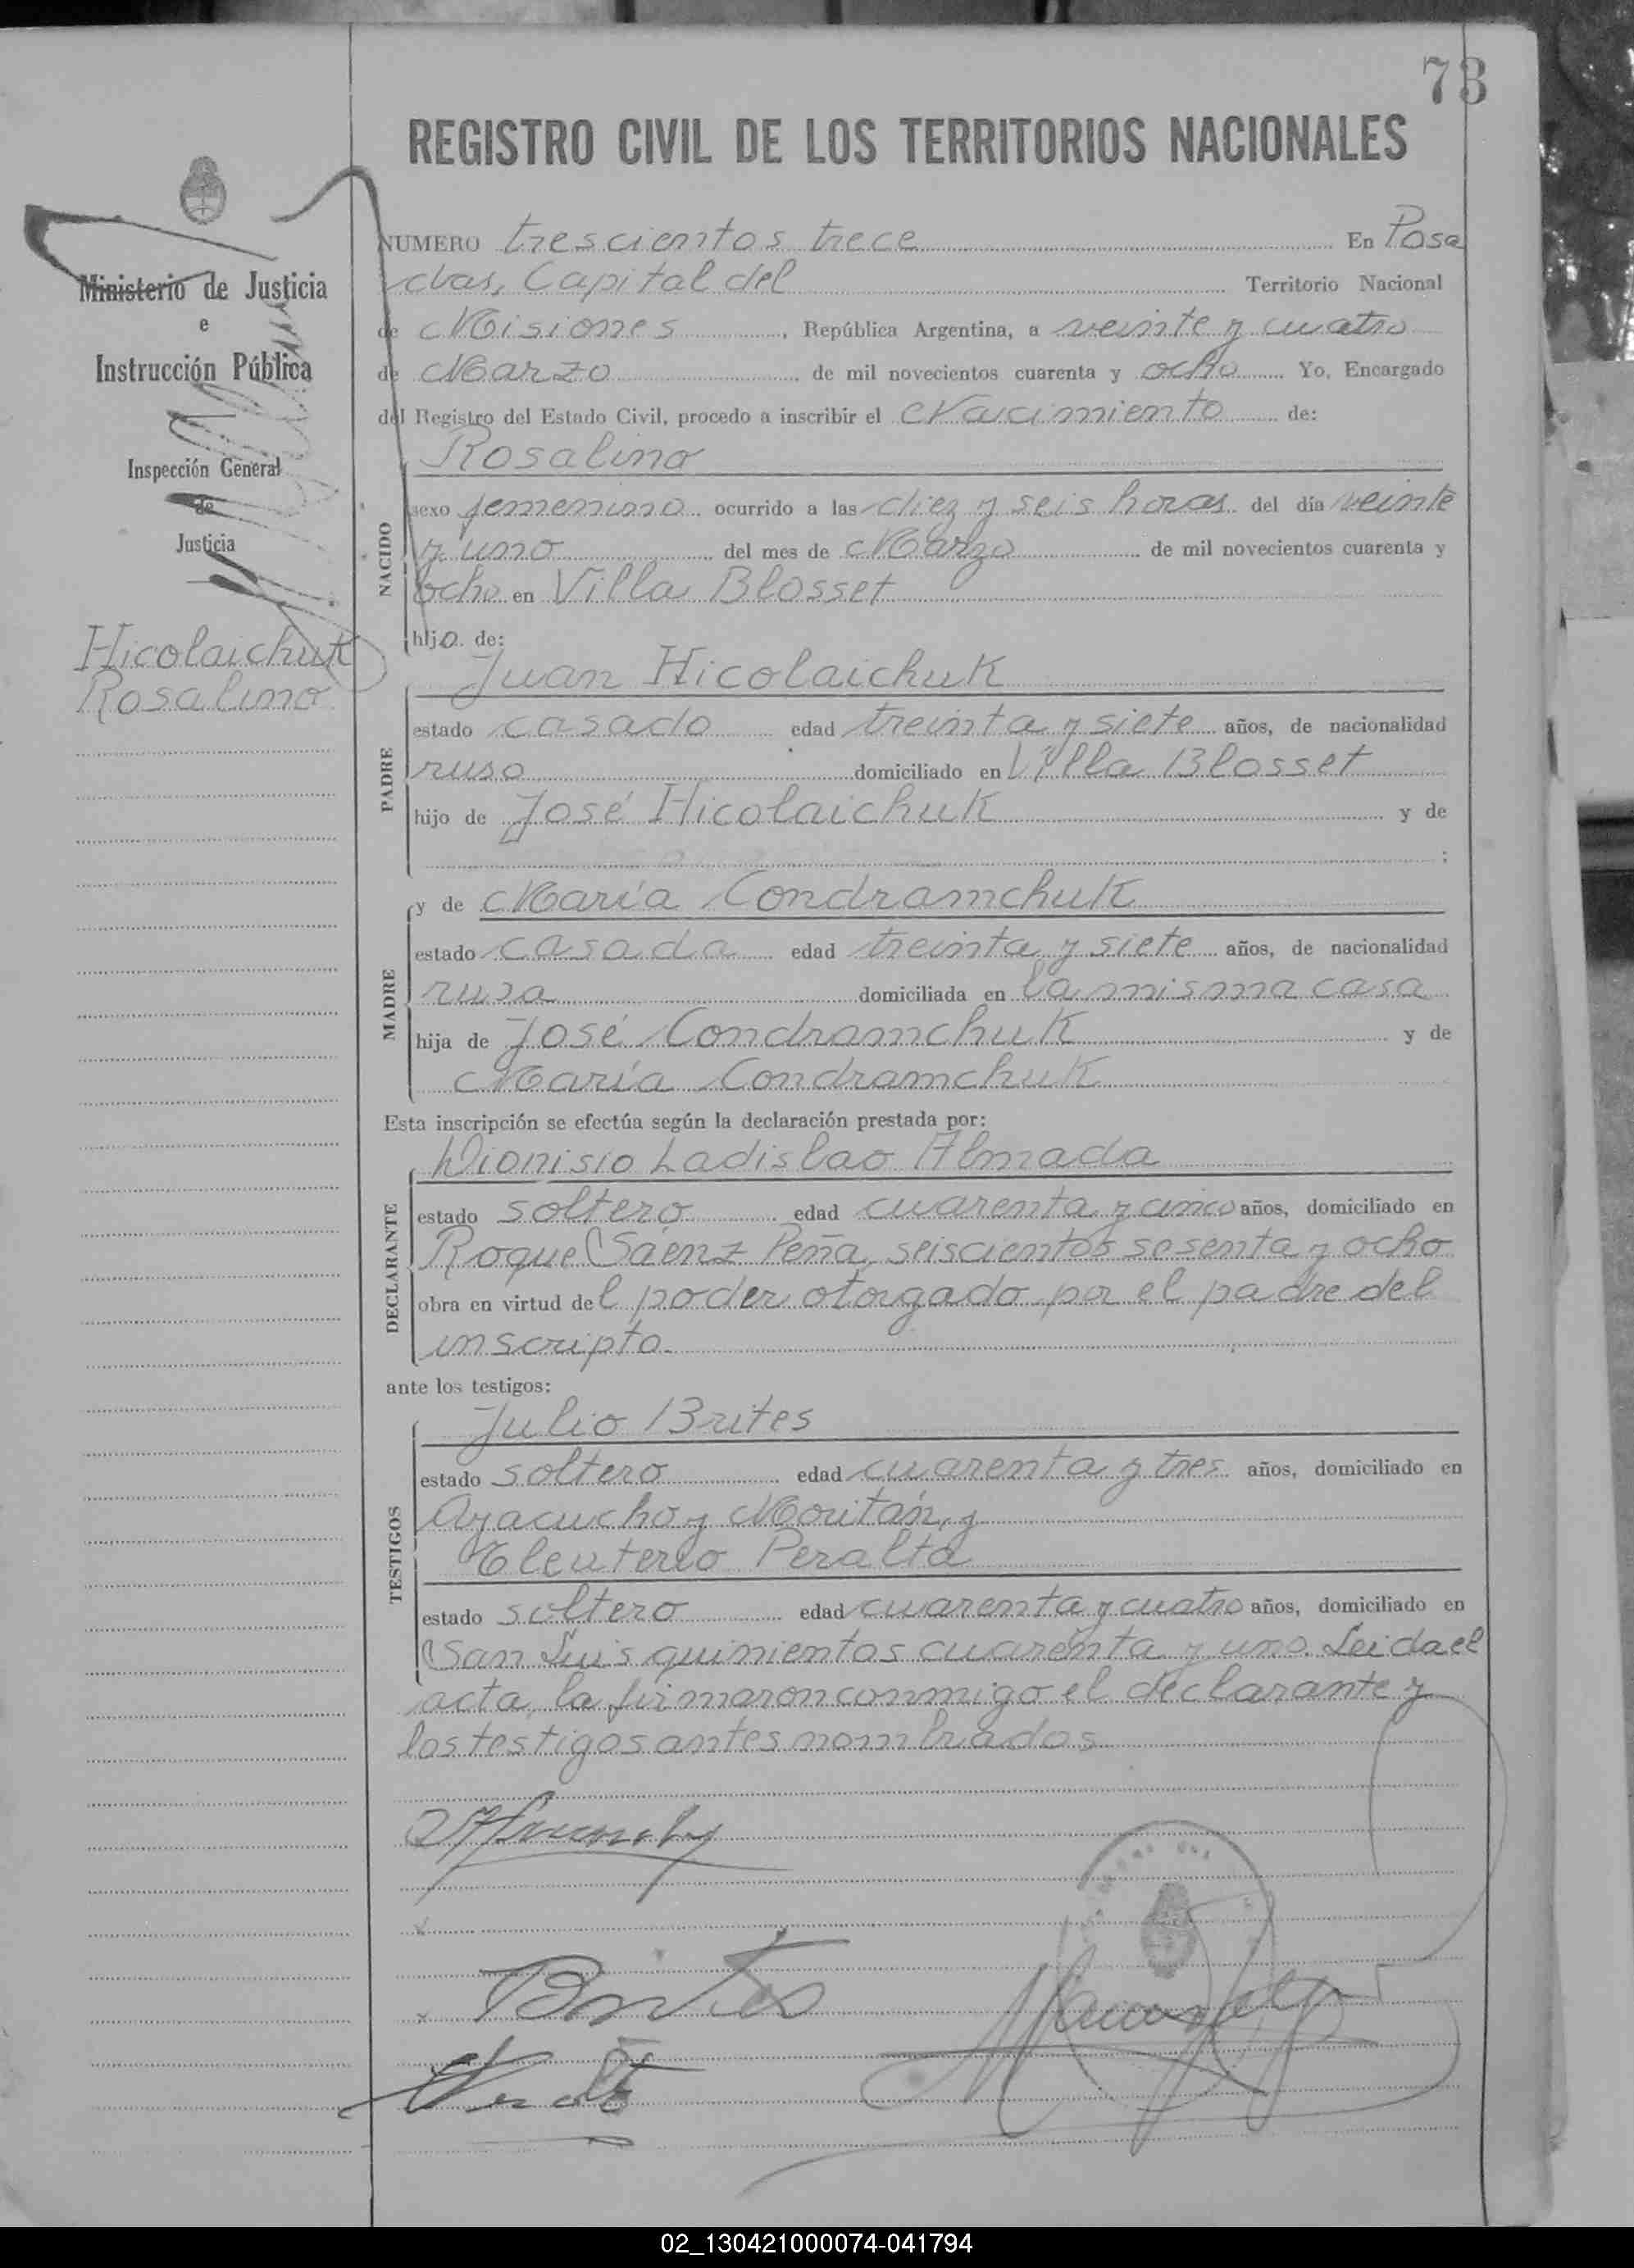 73
REGISTRO CIVIL DE LOS TERRITORIOS NACIONALES
Ministerio de Justicia
e
Instrucción Pública
Inspección General
de
Justicia
Hicolaichuk
Rosalino
NUMERO trescientos trece En Posa
das, Capital del Territorio Nacional
de Misiones, República Argentina, a veinte y cuatro
de Marzo de mil novecientos cuarenta y ocho Yo, Encargado
del Registro del Estado Civil, procedo a inscribir el Nacimiento de:
Rosalino
NACIDO
sexo femenino ocurrido a las diez y seis horas del día veinte
y uno del mes de Marzo de mil novecientos cuarenta y
ocho en Villa Blosset
hijo de:
Juan Hicolaichuk
PADRE
estado casado edad treinta y siete años, de nacionalidad
ruso domiciliado en Villa Blosset
hijo de José Hicolaichuk y de
;
y de María Condramchuk
MADRE
estado casada edad treinta y siete años, de nacionalidad
rusa domiciliada en la misma casa
hija de José Condramchuk y de
María Condramchuk
Esta inscripción se efectúa según la declaración prestada por:
Dionisio Ladislao Almada
DECLARANTE
estado soltero edad cuarenta y cinco años, domiciliado en
Roque Sáenz Peña, seiscientos sesenta y ocho
obra en virtud del poder otorgado por el padre del
inscripto.
ante los testigos:
Julio Brites
TESTIGOS
estado soltero edad cuarenta y tres años, domiciliado en
Ayacucho y Moritán, y
Eleuterio Peralta
estado soltero edad cuarenta y cuatro años, domiciliado en
San Luis quinientos cuarenta y uno. Leida el
acta, la firmaron conmigo el declarante y
los testigos antes nombrados
Brites
02_130421000074-041794